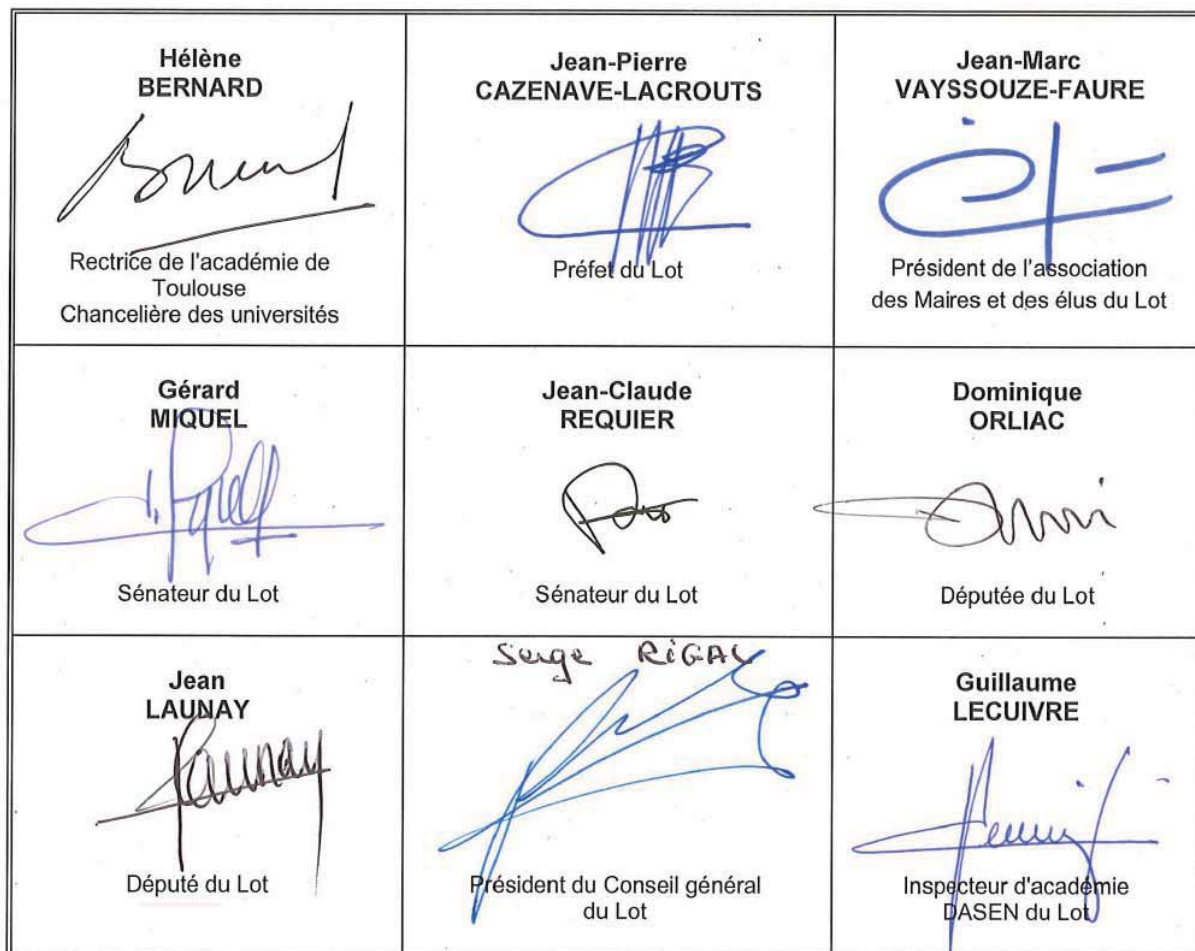 Hélène
BERNARD
Rectrice de l'académie de
Toulouse
Chancelière des universités
Jean-Pierre
CAZENAVE-LACROUTS
Préfet du Lot
Jean-Marc
VAYSSOUZE-FAURE
Président de l'association
des Maires et des élus du Lot
Gérard
MIQUEL
Sénateur du Lot
Jean-Claude
REQUIER
Sénateur du Lot
Dominique
ORLIAC
Députée du Lot
Jean
LAUNAY
Launay
Député du Lot
Serge RiGAL
Président du Conseil général
du Lot
Guillaume
LECUIVRE
Inspecteur d'académie
DASEN du Lot